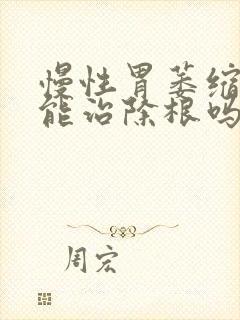 慢性胃萎缩
能治除根吗
周宏